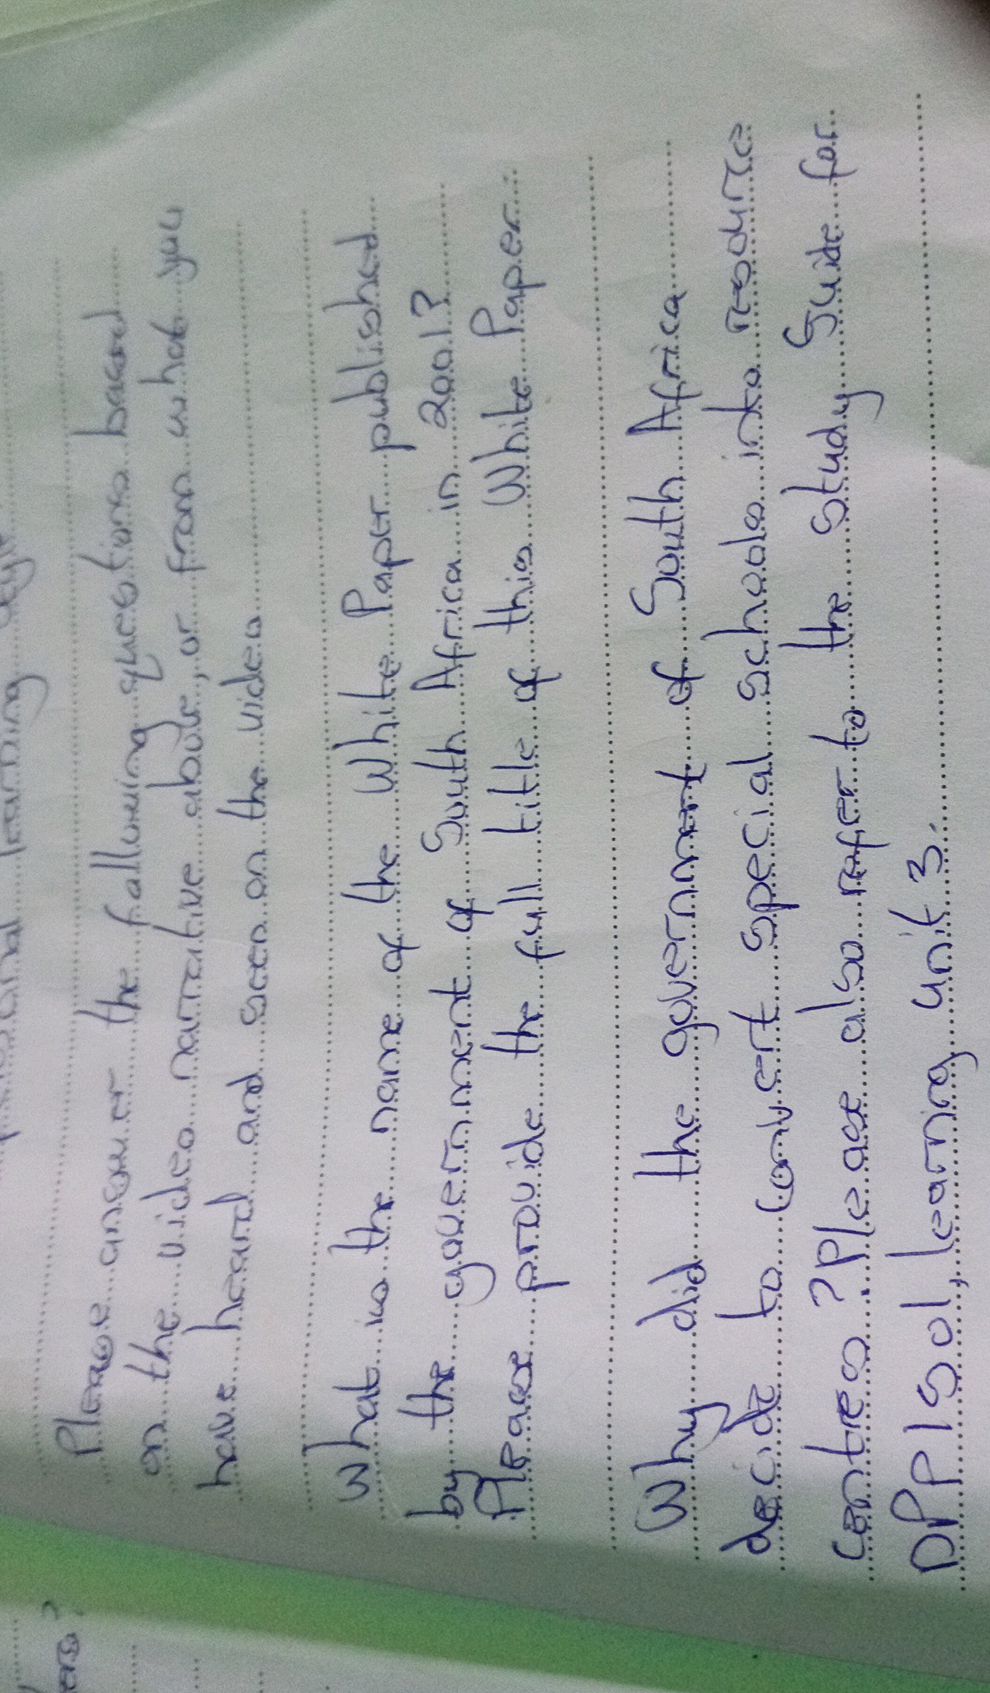 personal learning style
Please answer the following questions based
on the video narrative above, or from what you
have heard and seen on the video
What is the name of the White Paper published
by the government of South Africa in 2001?
Please provide the full title of this White Paper.
Why did the government of South Africa
decide to convert special schools into resource
centres? Please also refer to the study guide for
DPP1501, learning unit 3.